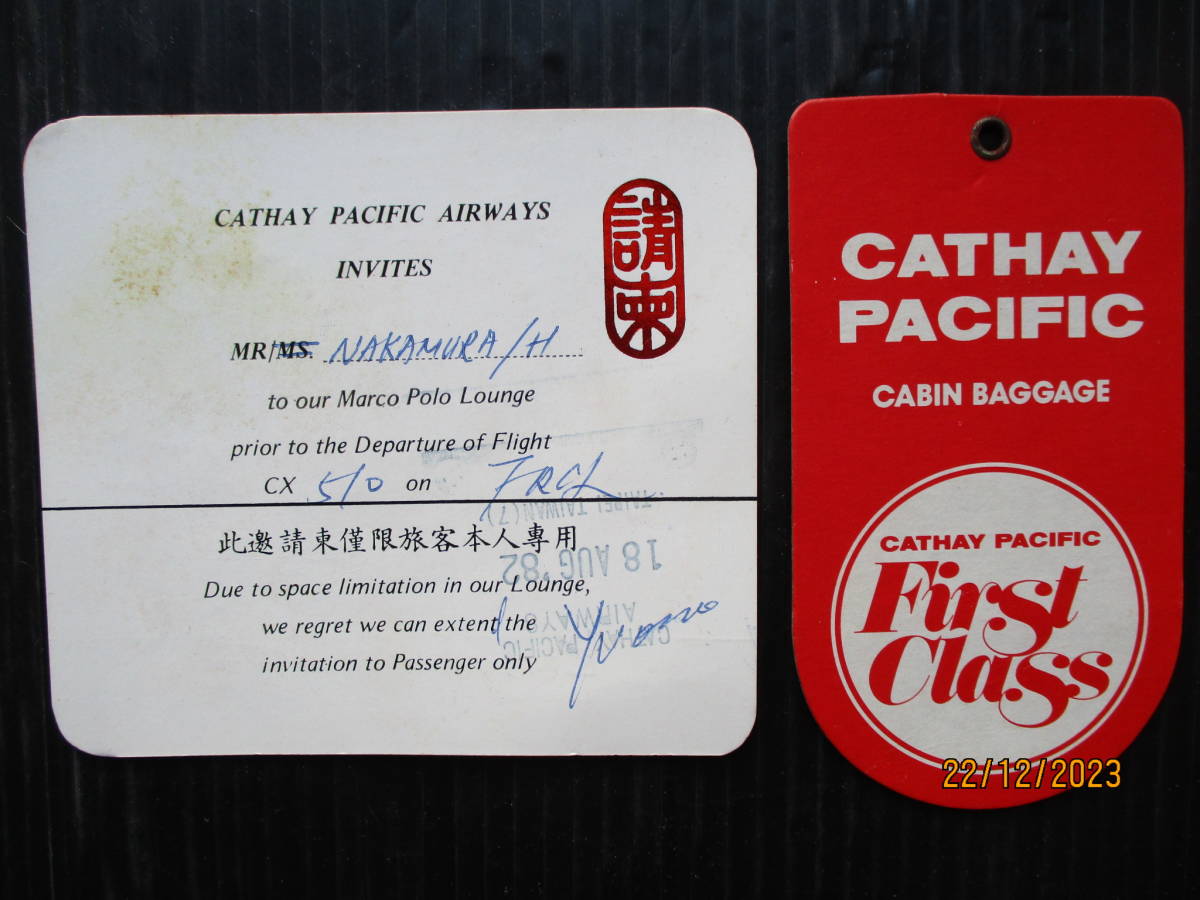 CATHAY PACIFIC AIRWAYS
INVITES
請柬
MR/MS. NAKAMURA/H
to our Marco Polo Lounge
prior to the Departure of Flight
CX 510 on
此邀請柬僅限旅客本人專用
Due to space limitation in our Lounge,
we regret we can extent the
invitation to Passenger only
TAIPEI TAIWAN (7)
18 AUG '82
CATHAY PACIFIC
AIRWAYS
CATHAY
PACIFIC
CABIN BAGGAGE
CATHAY PACIFIC
First
Class
22/12/2023